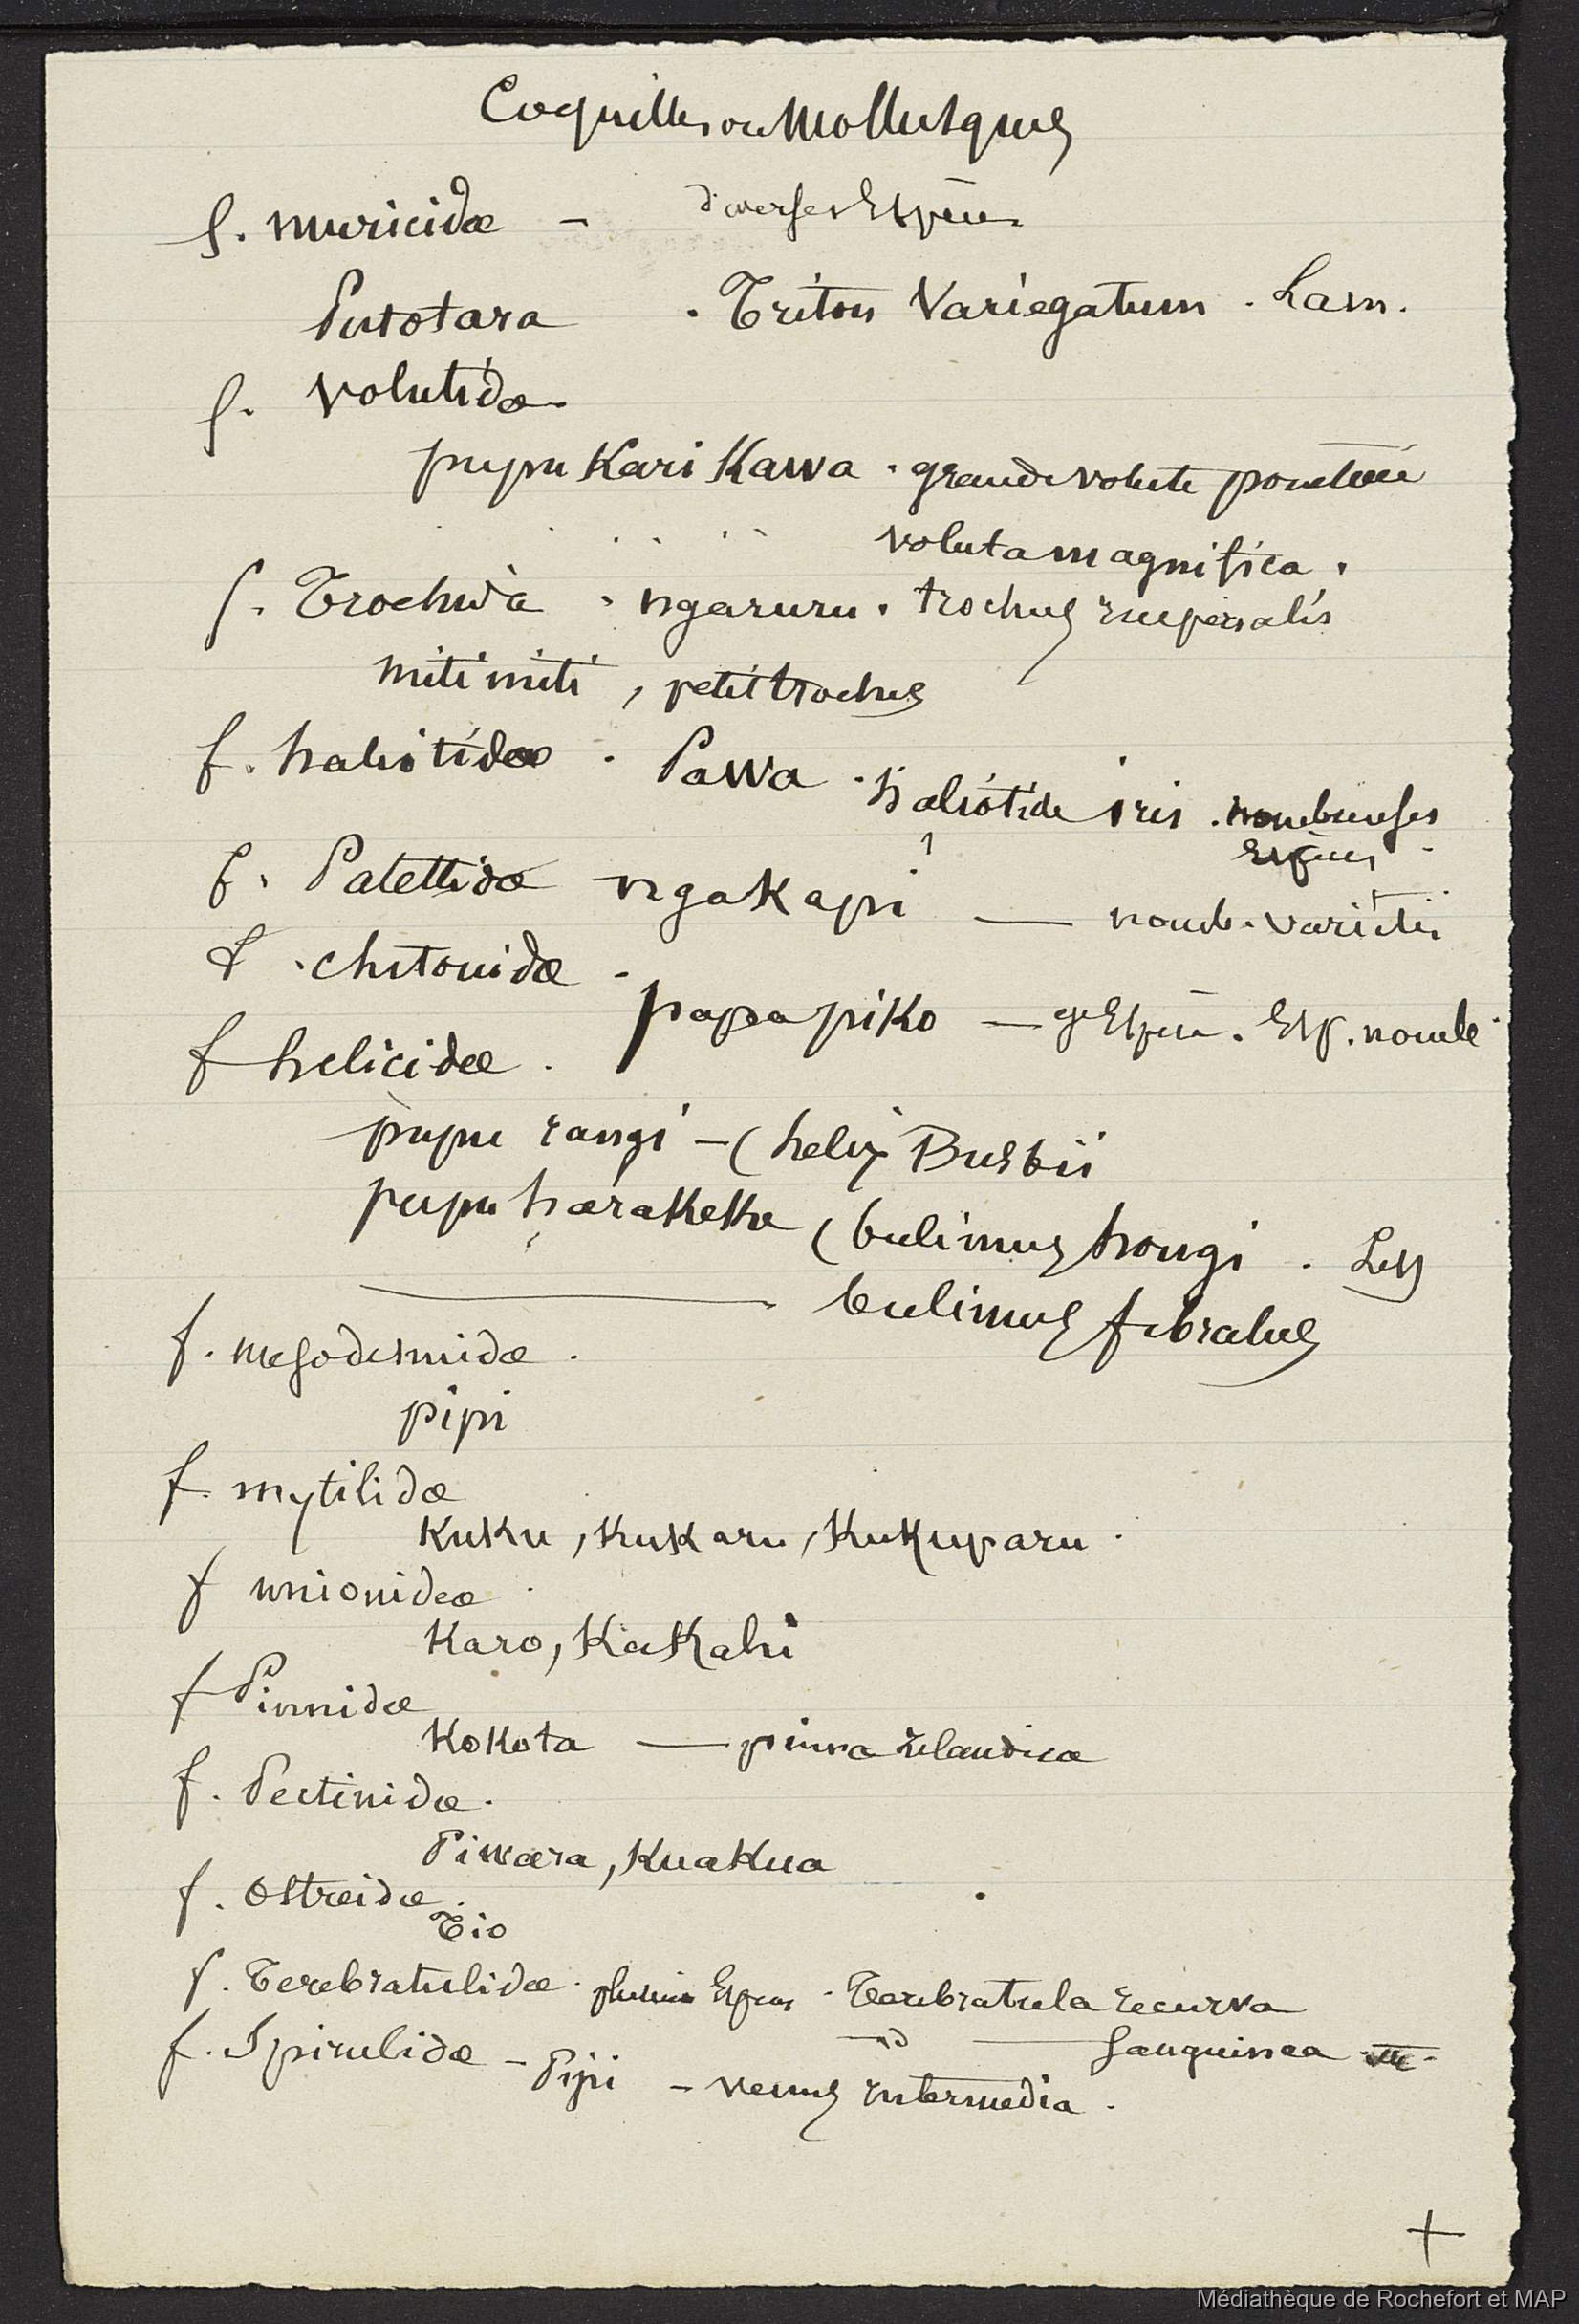 Coquilles ou Mollusques
f. muricidæ - diverses Espèces
Putotara . Triton Variegatum . Lam.
f. Volutidæ.
pupu Kari Kawa . grande volute ponctuée
voluta magnifica .
f. Trochidæ . ngaruru . trochus imperialis
miti miti , petit trochus
f. haliotidæ . Pawa . haliotide iris . nombreuses
Espèces .
f. Patellidæ ngakapi — nomb. variétés
f . chitonidæ .
papapiko — gde Espèce . Esp. nombr
f helicidæ .
pupu rangi - ( helix Busbii
pupu harakeke ( bulimus hongi . Less
——— bulimus fibratus
f. mesodesmidæ .
pipi
f. mytilidæ
Kuku , Kukaru , Kukuparu .
f unionidæ .
Karo, Kakahi
f Pinnidæ
Kokota — pinna zelandica
f. Pectinidæ.
Piwara, Kuakua
f. Ostreidæ .
Tio
f. Terebratulidæ . plusieurs Espèces . Terebratula recurva
— id — sanguinea
f. Spirulidæ - Pipi - venus intermedia .
+
Médiathèque de Rochefort et MAP